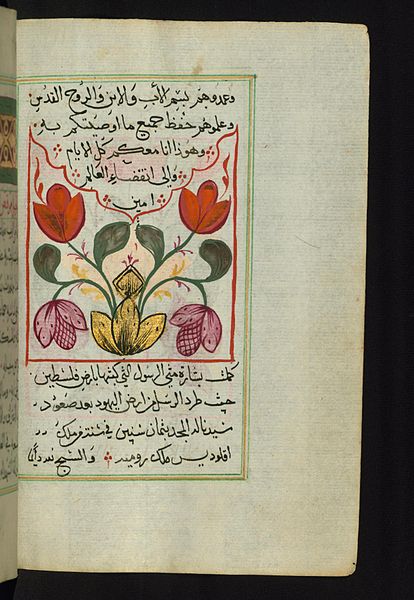 وعمدوهم بسم الاب والابن والروح القدس
وعلموهم حفظ جميع ما اوصيتكم به
وهوذا انا معكم كل الايام
والى انقضاء العالم
امين
كملت بشارة متى الرسول التي كتبها بارض فلسطين
حيث طرد الرسل من ارض اليهود بعد صعود
سيدنا له المجد بثمان سنين في سنة من ملك
اقلوديس ملك رومية والسبح لله دايما